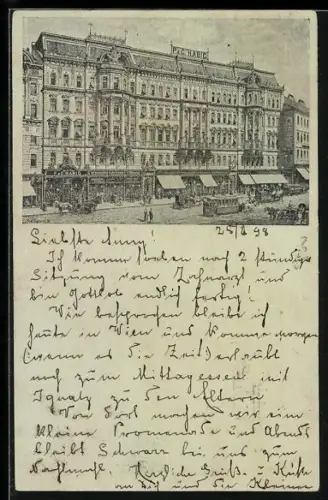 P. & C. HABIG
25/8 98
Liebste Anny!
Ich komme soeben nach 2 stündiger
Sitzung vom Zahnarzt und
bin Gottlob endlich fertig!
Wie besprochen bleibe ich
heute in Wien und komme morgen
(wenn es die Zeit) erlaubt
noch zum Mittagessen mit
Ignatz zu den Eltern
Von dort machen wir eine
kleine Promenade und Abends
bleibt Schwarz bei uns zum
Nachtmahl. Grüße u Küße
an Dich und die Kleinen